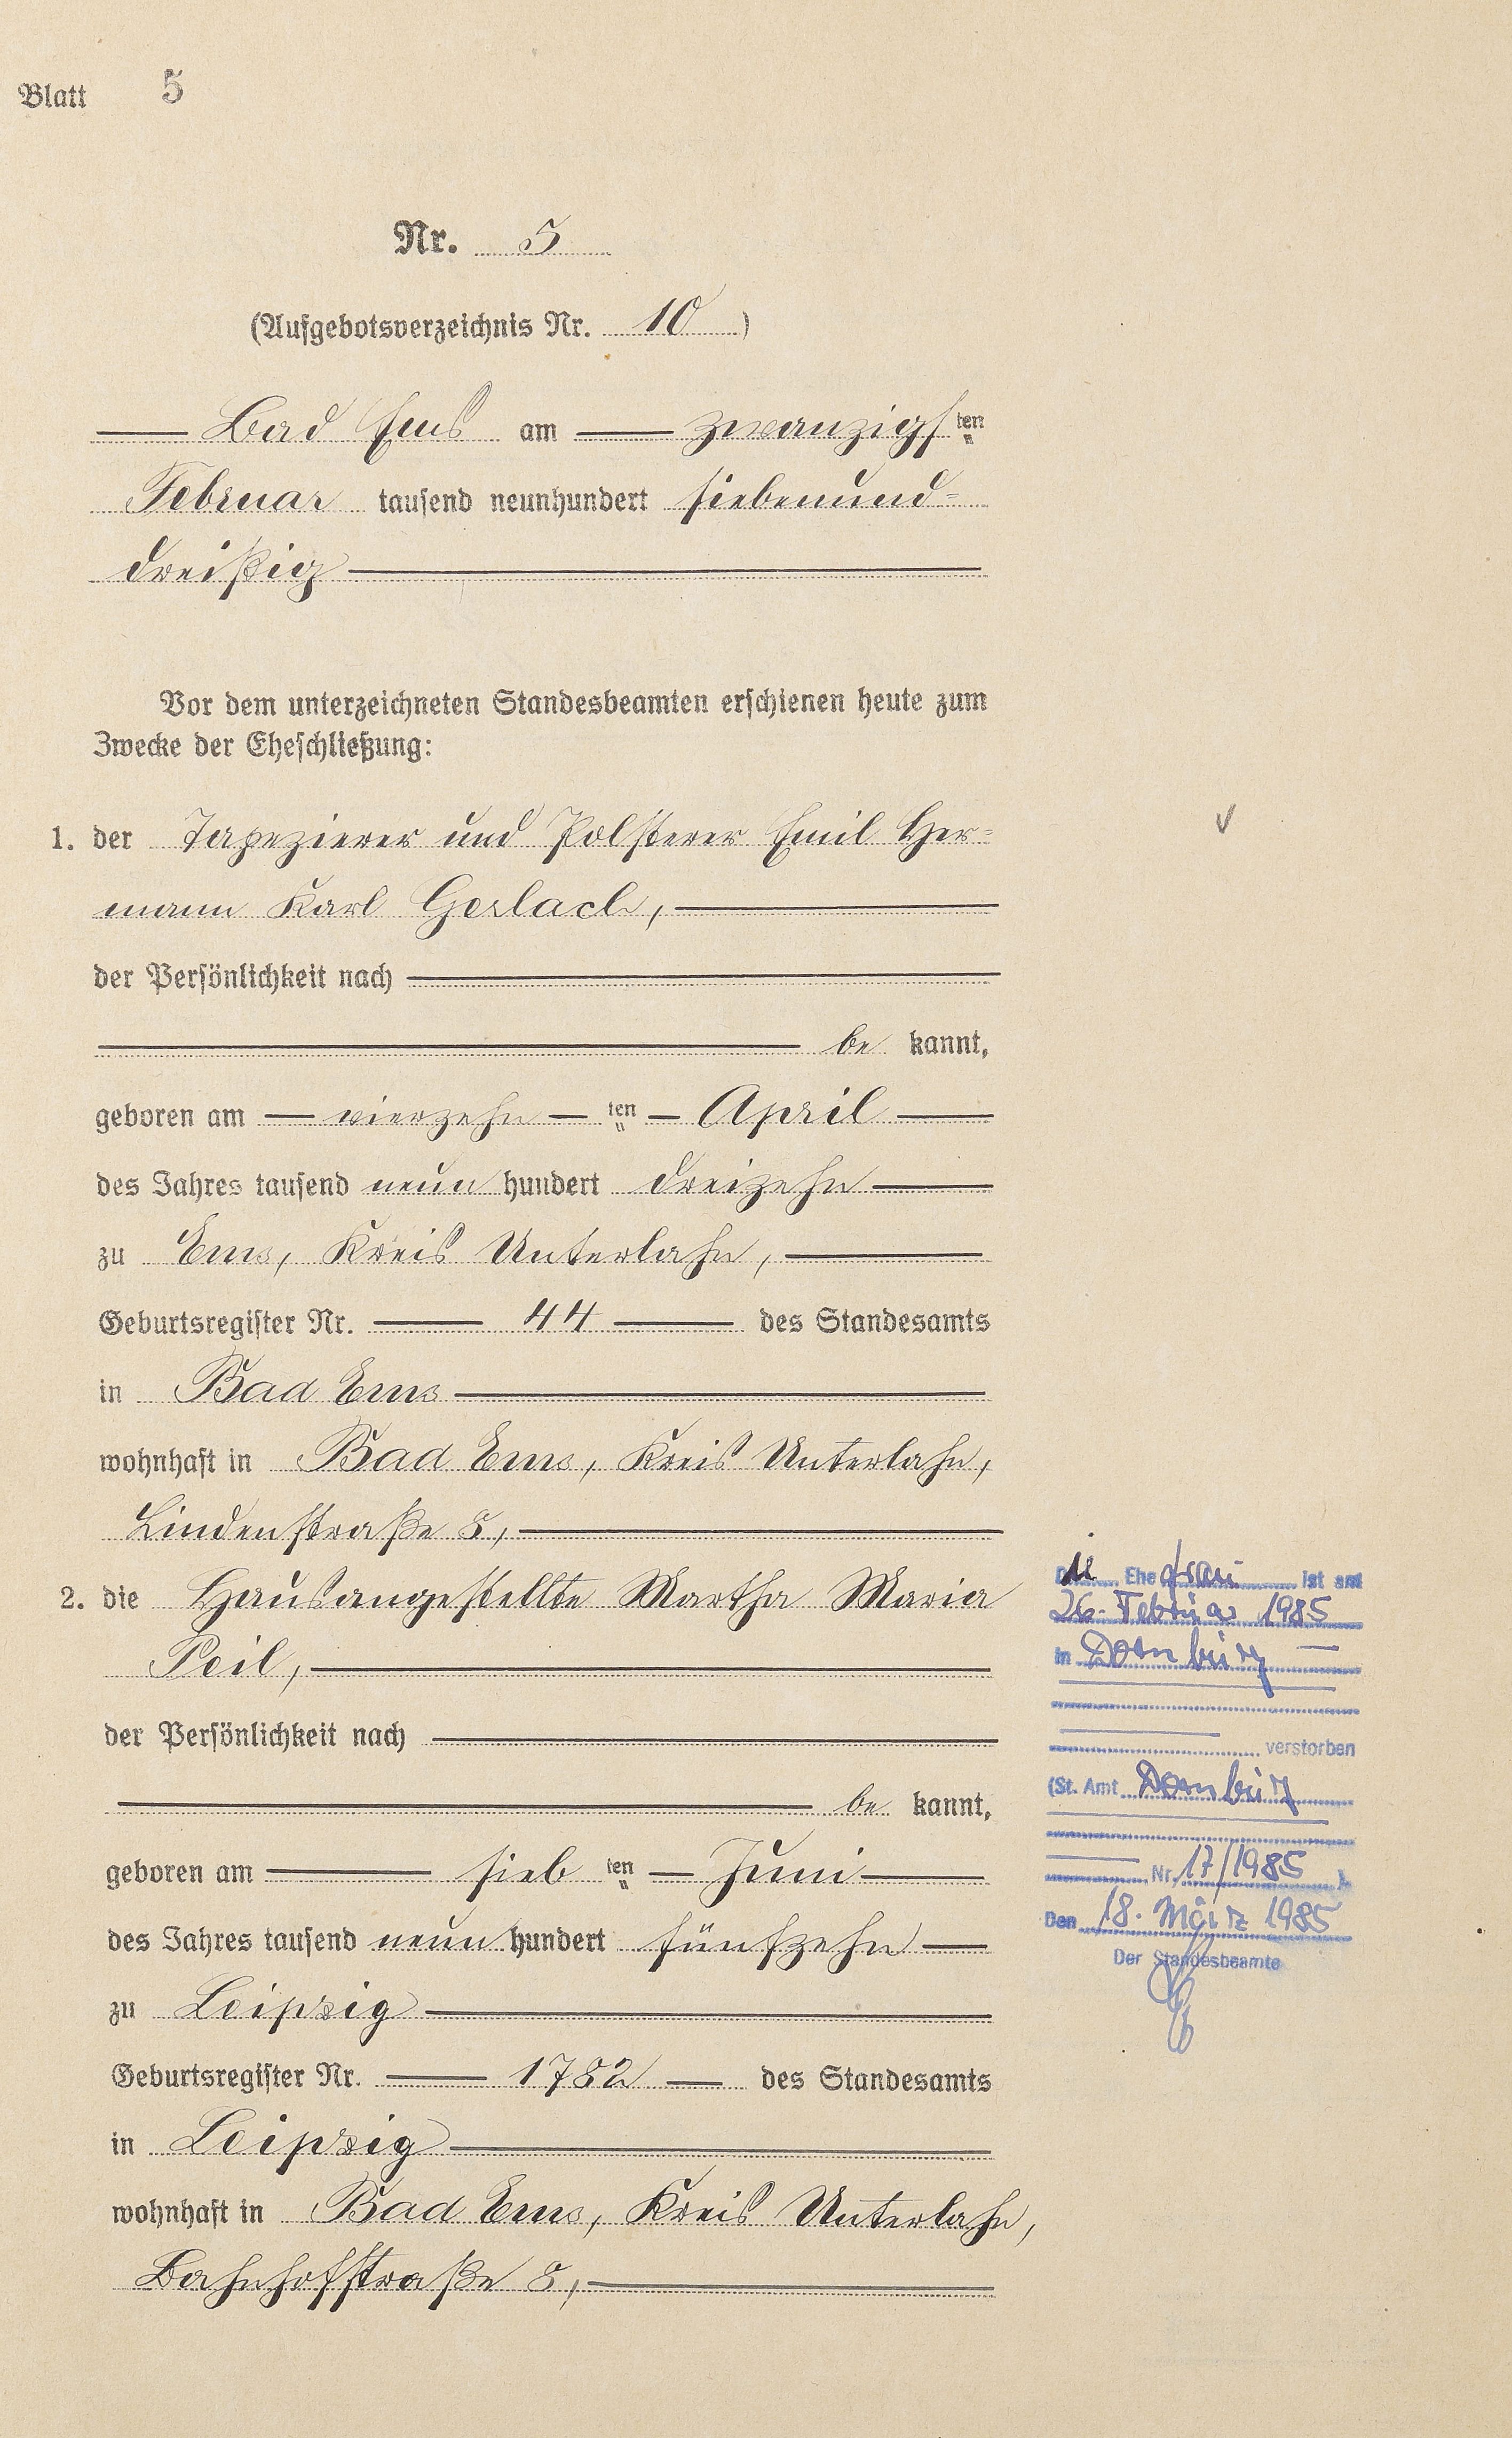 Blatt 5
Nr. 5
(Aufgebotsverzeichnis Nr. 10)
Bad Ems am zwanzigsten
Februar tausend neunhundert siebenund=
dreißig
Vor dem unterzeichneten Standesbeamten erschienen heute zum
Zwecke der Eheschließung:
1. der Tapezierer und Polsterer Emil Her=
mann Karl Gerlach,
der Persönlichkeit nach
be kannt,
geboren am vierzehn ten April
des Jahres tausend neun hundert dreizehn
zu Ems, Kreis Unterlahn,
Geburtsregister Nr. 44 des Standesamts
in Bad Ems
wohnhaft in Bad Ems, Kreis Unterlahn,
Lindenstraße 8,
2. die Hausangestellte Martha Maria
Peil,
der Persönlichkeit nach
be kannt,
geboren am sieb ten Juni
des Jahres tausend neun hundert fünfzehn
zu Leipzig
Geburtsregister Nr. 1782 des Standesamts
in Leipzig
wohnhaft in Bad Ems, Kreis Unterlahn,
Bahnhofstraße 8,
Die Ehefrau ist am
26. Februar 1985
in Dornburg
verstorben
(St. Amt Dornburg
Nr. 17/1985 )
Den 18. März 1985
Der Standesbeamte